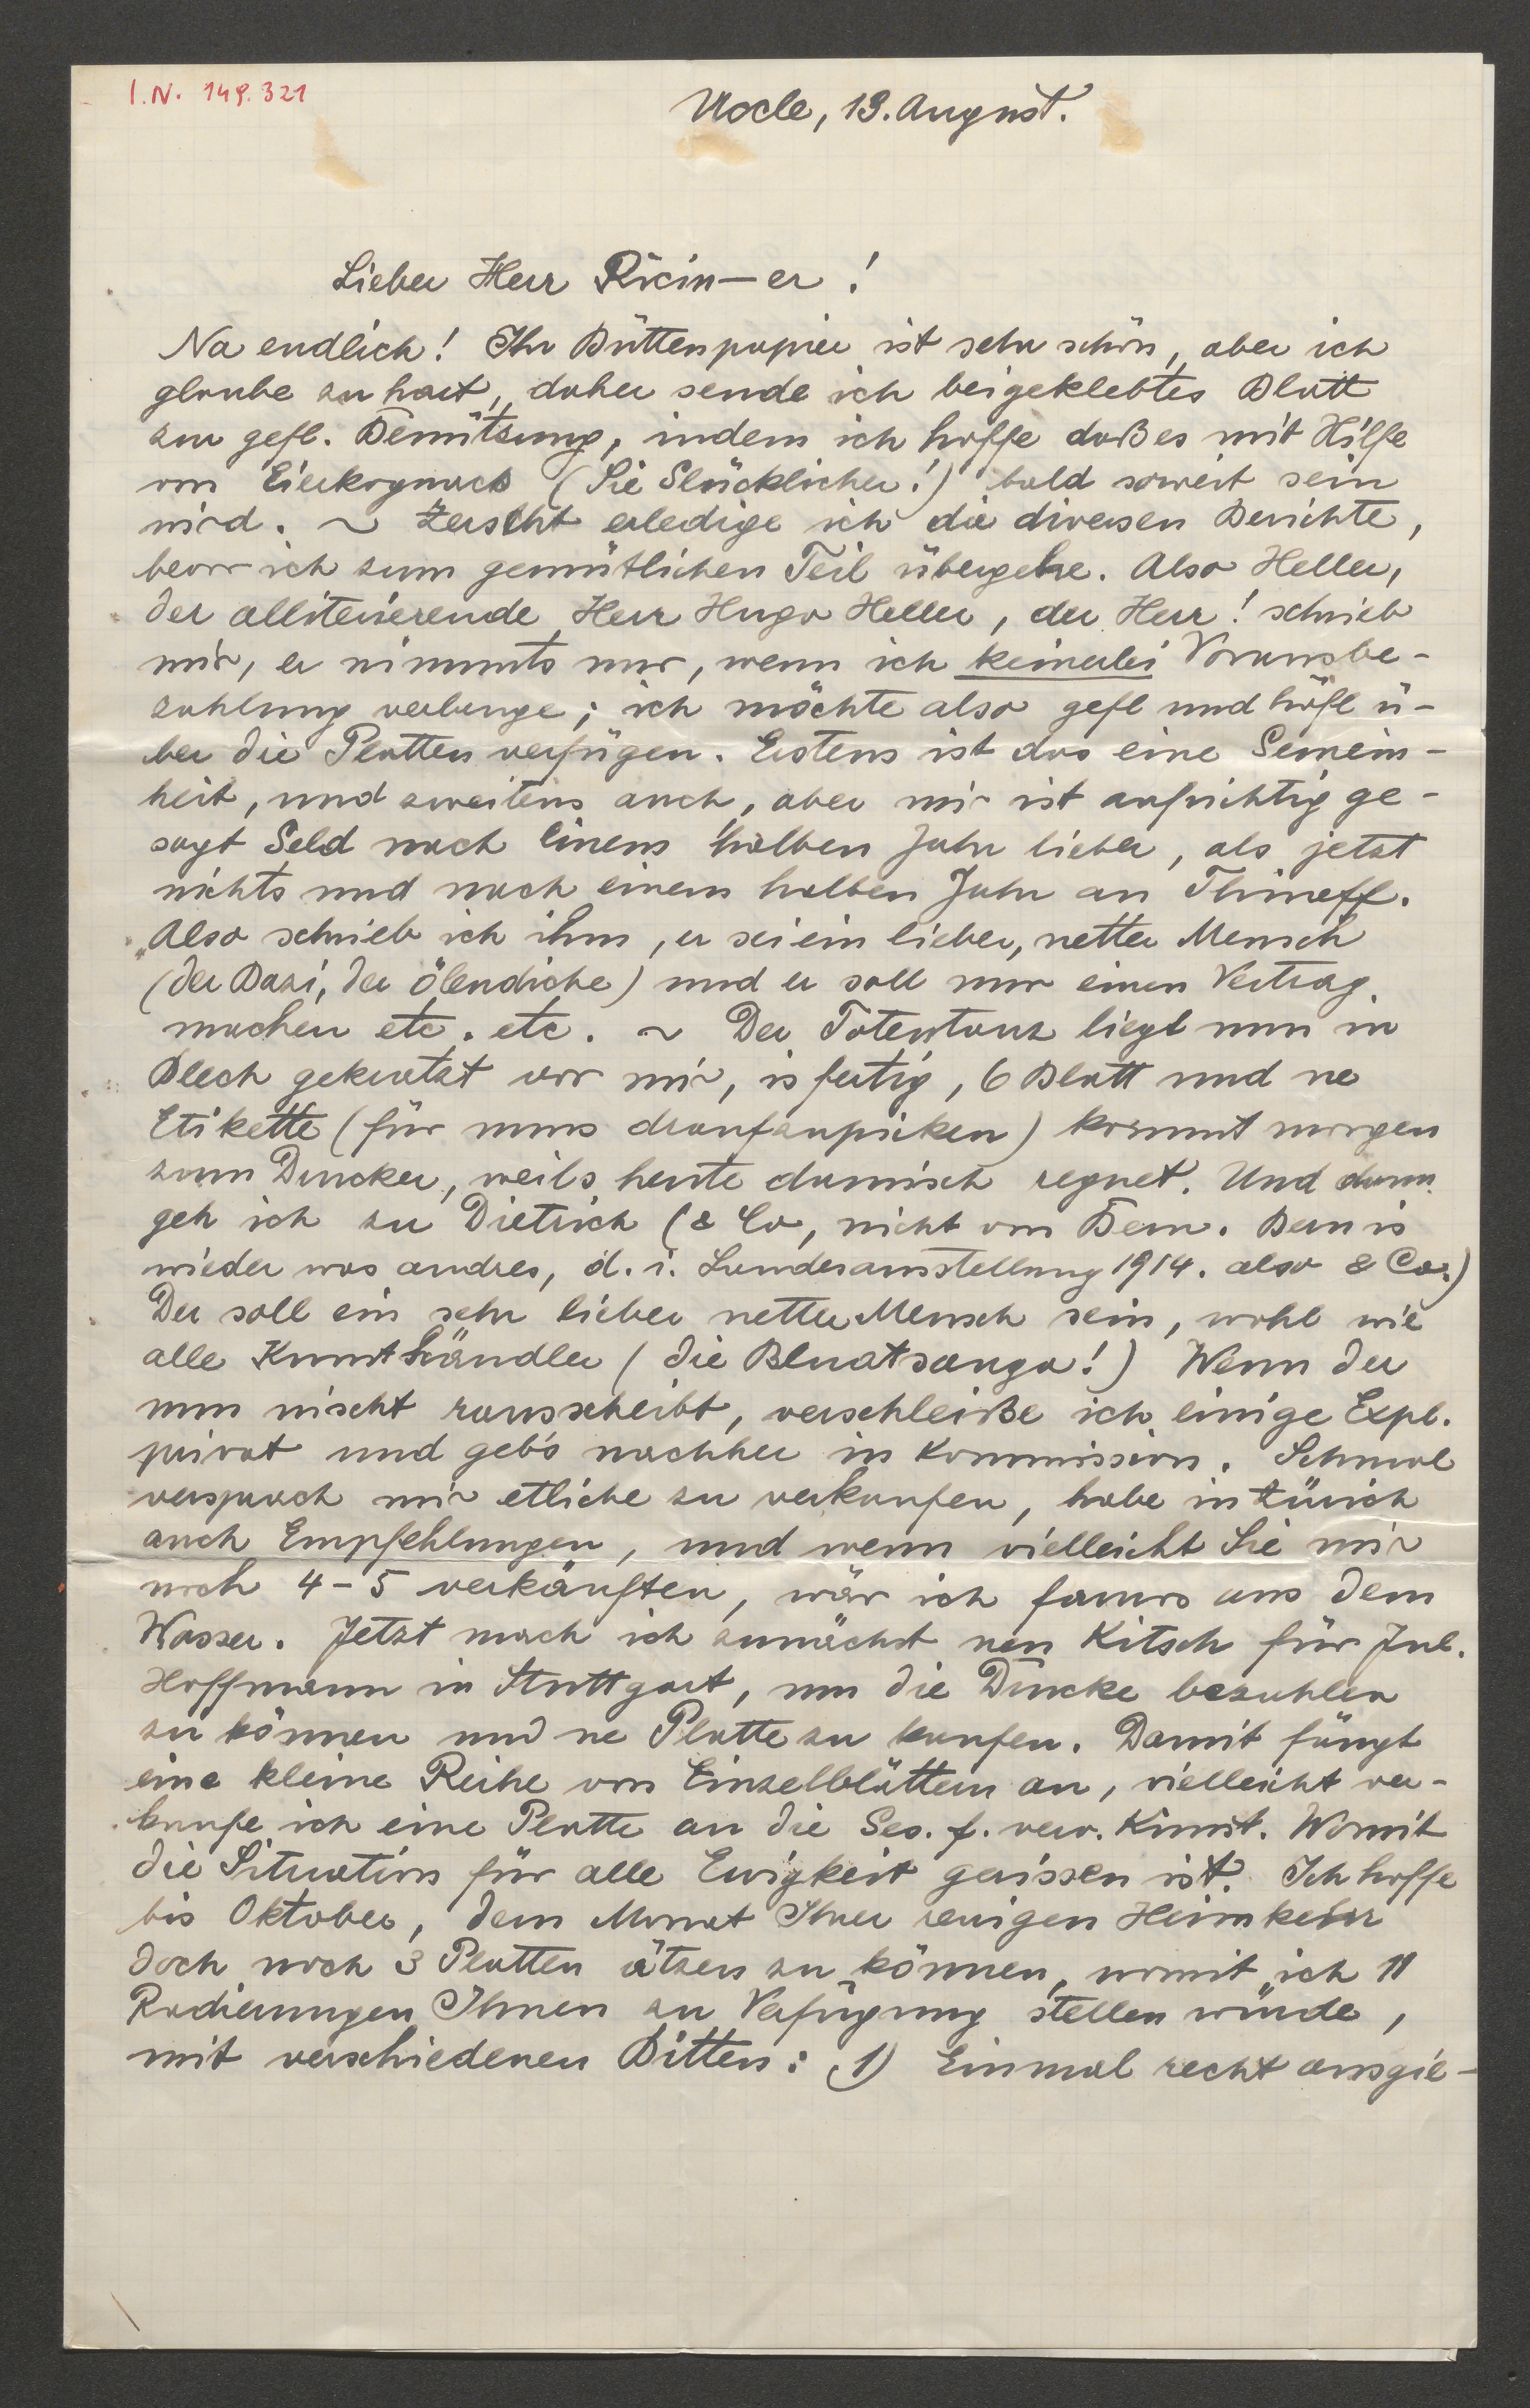 I.N. 149.321
Uccle, 19. August.
Lieber Herr Ricin-er!
Na endlich! Ihr Büttenpapier ist sehr schön, aber ich
glaube zu hart, daher sende ich beigeklebtes Blatt
zur gefl. Benützung, indem ich hoffe daß es mit Hilfe
von Eierkognacs (Sie Glücklicher!) bald soweit sein
wird. ~ Zerscht erledige ich die diversen Berichte,
bevor ich zum gemütlichen Teil übergehe. Also Heller,
der alliterierende Herr Hugo Heller, der Herr! schrieb
mir, er nimmts nur, wenn ich keinerlei Vorausbe-
zahlung verlange; ich möchte also gefl und höfl ü-
ber die Platten verfügen. Erstens ist das eine Gemein-
heit, und zweitens auch, aber mir ist aufrichtig ge-
sagt Geld nach einem halben Jahr lieber, als jetzt
nichts und nach einem halben Jahr an Thineff.
Also schrieb ich ihm, er sei ein lieber, netter Mensch
(der Bazi, der ölendiche) und er soll nur einen Vertrag
machen etc. etc. ~ Der Totentanz liegt nun in
Blech gekratzt vor mir, is fertig, 6 Blatt und ne
Etikette (für mans draufzupicken) kommt morgen
zum Drucker, weils heute damisch regnet. Und dann
geh ich zu Dietrich (& Co, nicht von Bern. Bern is
wieder was andres, d. i. Landesausstellung 1914. also & Co.)
Der soll ein sehr lieber netter Mensch sein, wohl wie
alle Kunsthändler (die Bluatsauga!) Wenn der
nun nischt rausscheibt, verschleiße ich einige Expl.
privat und geb's nachher in Kommission. Schmal
versprach mir etliche zu verkaufen, habe in Zürich
auch Empfehlungen, und wenn vielleicht Sie mir
noch 4-5 verkäuften, wär ich famos aus dem
Wasser. Jetzt mach ich zunächst nen Kitsch für Jul.
Hoffmann in Stuttgart, um die Drucke bezahlen
zu können und ne Platte zu kaufen. Damit fängt
eine kleine Reihe von Einzelblättern an, vielleicht ver-
kaufe ich eine Platte an die Ges. f. verv. Kunst. Womit
die Situation für alle Ewigkeit gerissen ist. Ich hoffe
bis Oktober, dem Monat Ihrer reuigen Heimkehr
doch noch 3 Platten ätzen zu können, womit ich 11
Radierungen Ihnen zu Verfügung stellen würde,
mit verschiedenen Bitten: 1) Einmal recht ausgie-